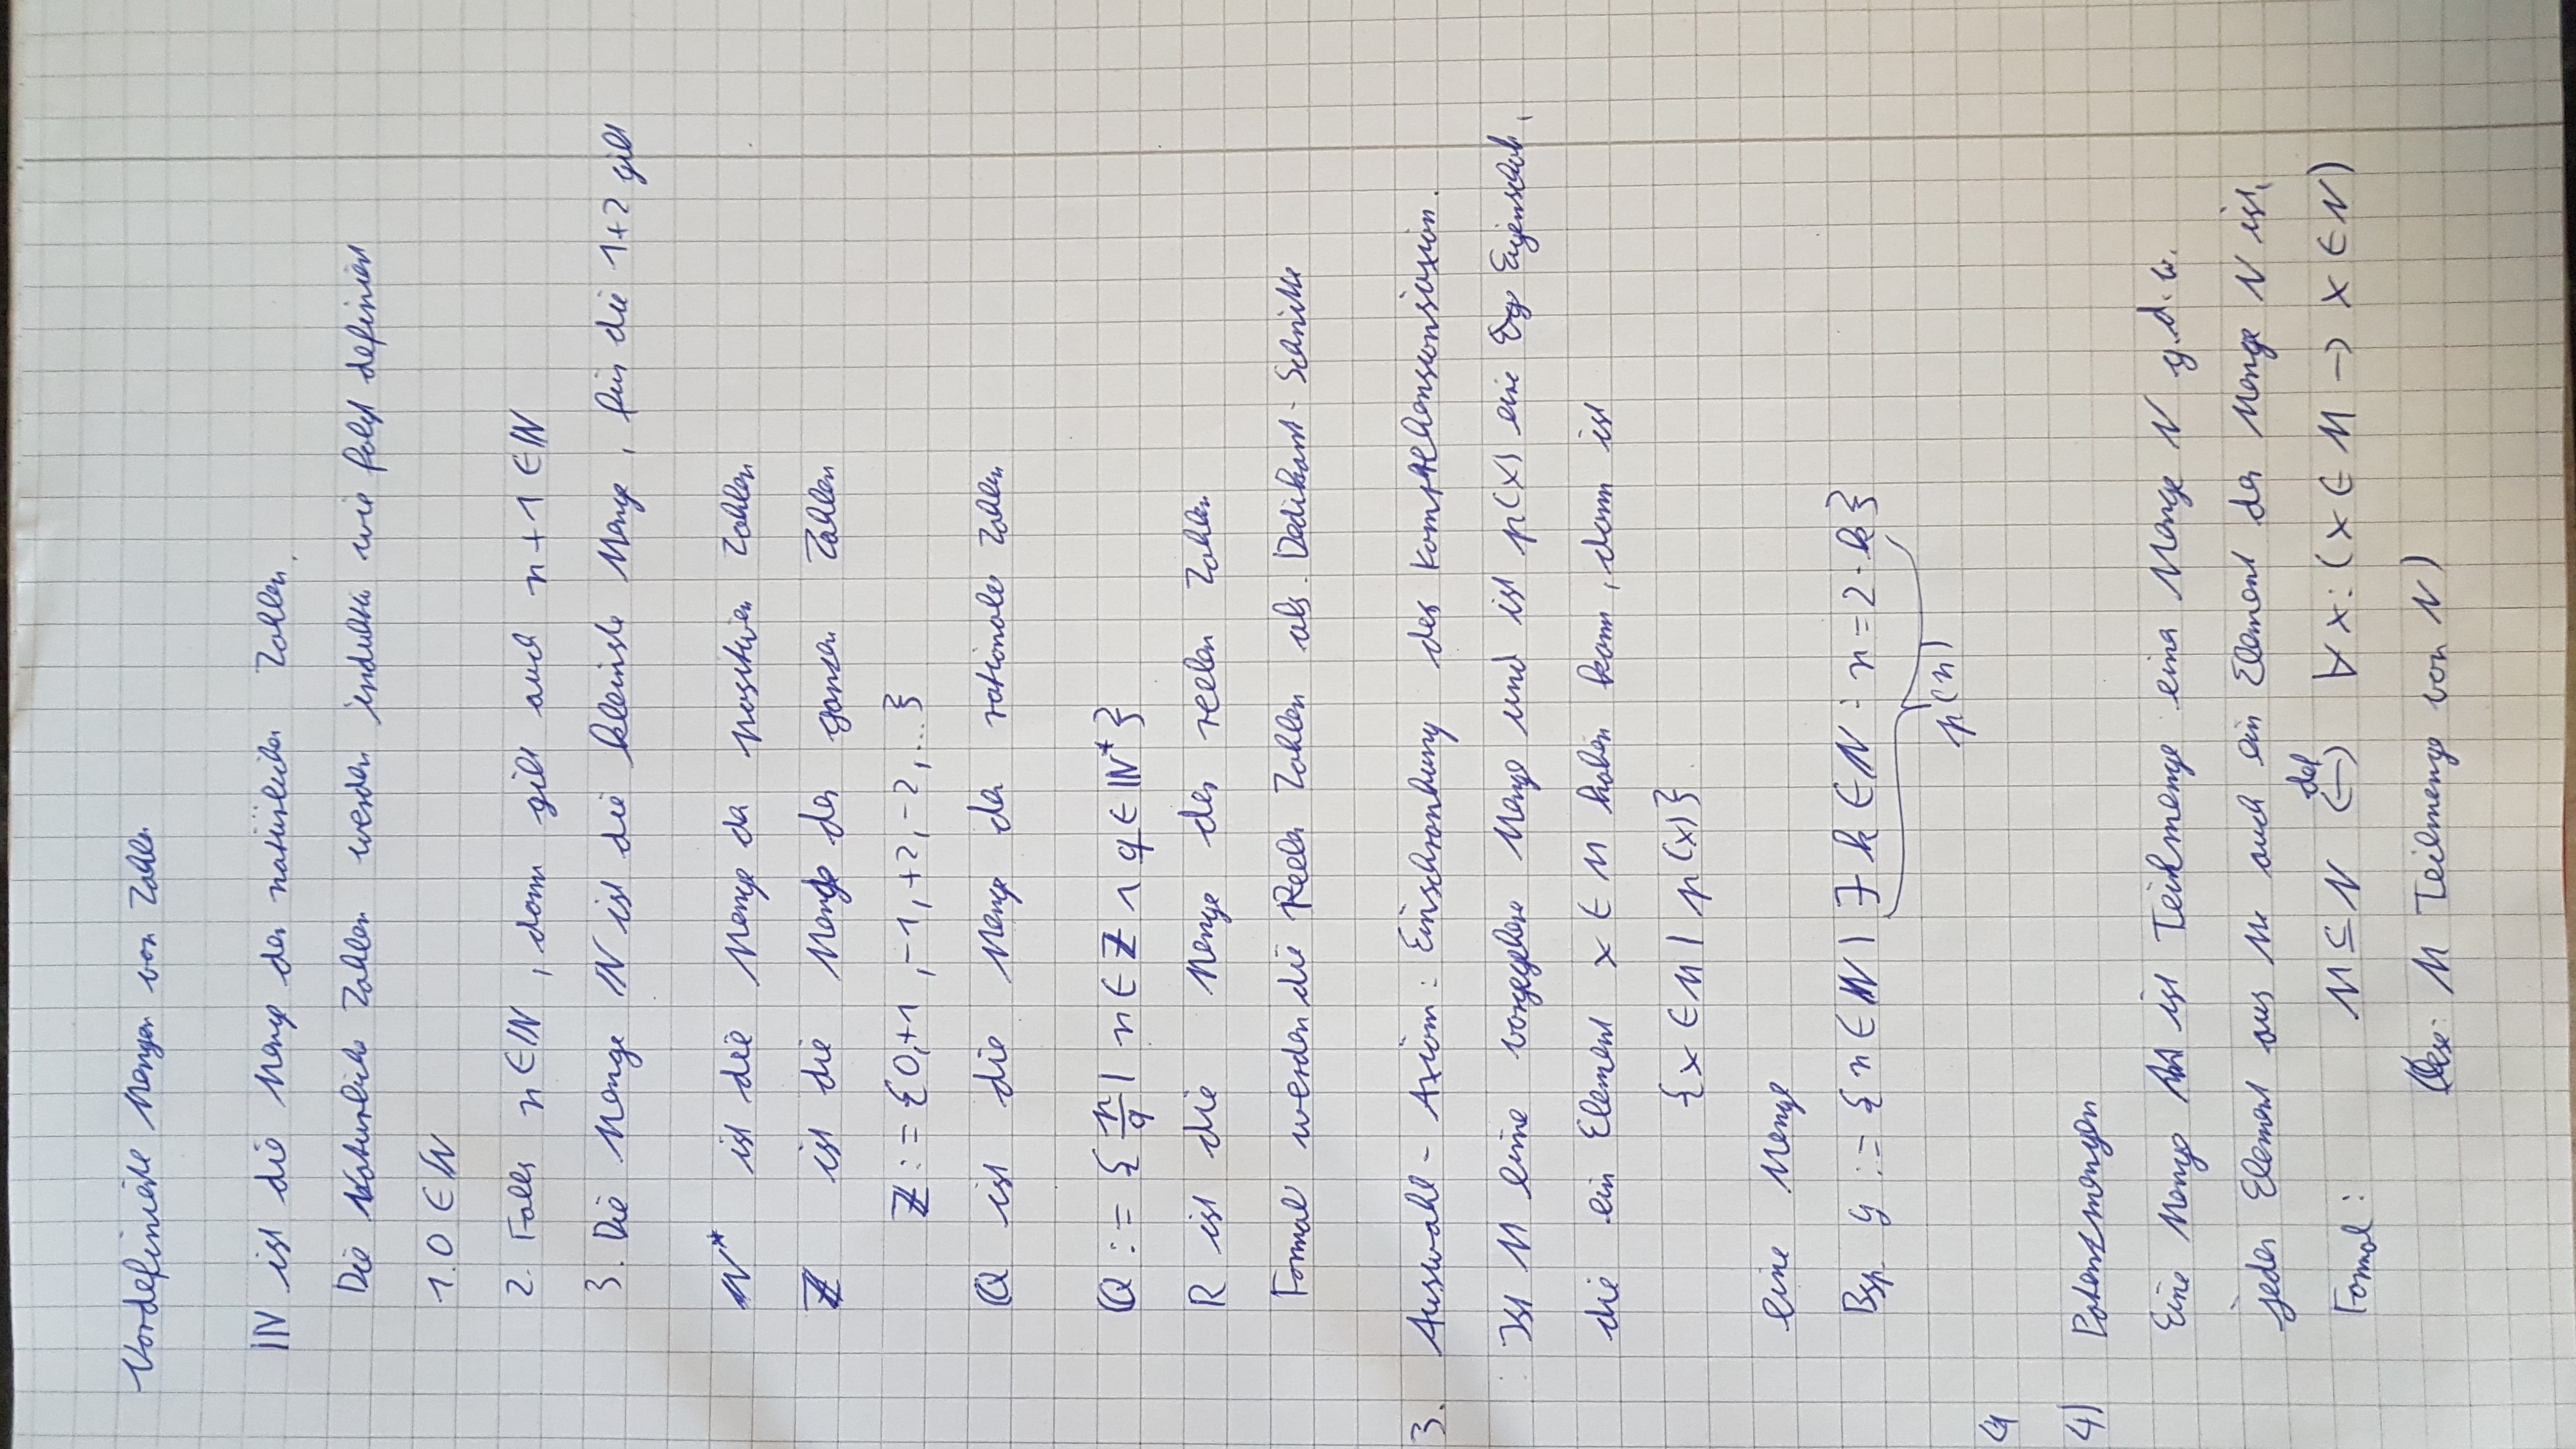 Vordefinierte Mengen von Zahlen
ℕ ist die Menge der natürlichen Zahlen.
Die Natürliche Zahlen werden induktiv wie folgt definiert
1. 0 ∈ ℕ
2. Falls n ∈ ℕ, dann gilt auch n + 1 ∈ ℕ
3. Die Menge ℕ ist die kleinste Menge, für die 1+2 gilt
ℕ* ist die Menge der positiven Zahlen
ℤ ist die Menge der ganzen Zahlen
ℤ := {0,+1,-1,+2,-2,...}
ℚ ist die Menge der rationalen Zahlen
ℚ := {n/q | n ∈ ℤ ∧ q ∈ ℕ*}
R ist die Menge der reelen Zahlen
Formal werden die Reelen Zahlen als Schnitte
3. Auswahl-Axiom: Einschränkung des
Ist M eine vorgegebene Menge und ist p(x) eine Eigenschaft,
die ein Element x ∈ M haben kann, dann ist
{x ∈ M | p(x)}.
eine Menge
Bsp. g := {n ∈ ℕ | ∃ k ∈ N : n = 2 · k}
p(n)
4
4) Potenzmengen
Eine Menge M ist Teilmenge einer Menge N g.d.w.
jedes Element aus M auch ein Element der Menge N ist.
def
Formal: M ⊆ N ↔ ∀x: (x ∈ M → x ∈ N)
(lese: M Teilmenge von N)